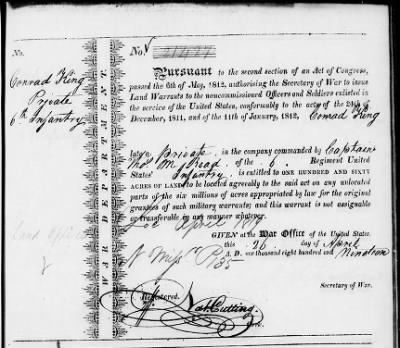 No.
Conrad King
Private
6th Infantry
WAR DEPARTMENT.
No.
Pursuant to the second section of an Act of Congress,
passed the 6th of May, 1812, authorising the Secretary of War to issue
Land Warrants to the noncommissioned Officers and Soldiers enlisted in
the service of the United States, conformably to the acts of the 24th of
December, 1811, and of the 11th of January, 1812, Conrad King
late a Private in the company commanded by Captain
Thos. M. Read of the 6. Regiment United
States' Infantry is entitled to ONE HUNDRED AND SIXTY
ACRES OF LAND to be located agreeably to the said act on any unlocated
parts of the six millions of acres appropriated by law for the original
grantees of such military warrants; and this warrant is not assignable
or transferable in any manner whatever.
April
GIVEN at the War Office of the United States,
this 26 day of April
A. D. one thousand eight hundred and Nineteen
Secretary of War.
Registered.
Cutting
Clerk.